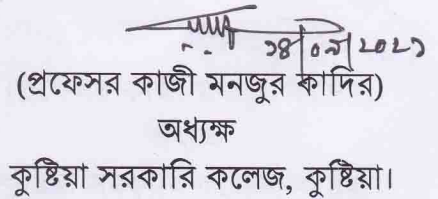 ১৪/০৯/২০২১
(প্রফেসর কাজী মনজুর কাদির)
অধ্যক্ষ
কুষ্টিয়া সরকারি কলেজ, কুষ্টিয়া।